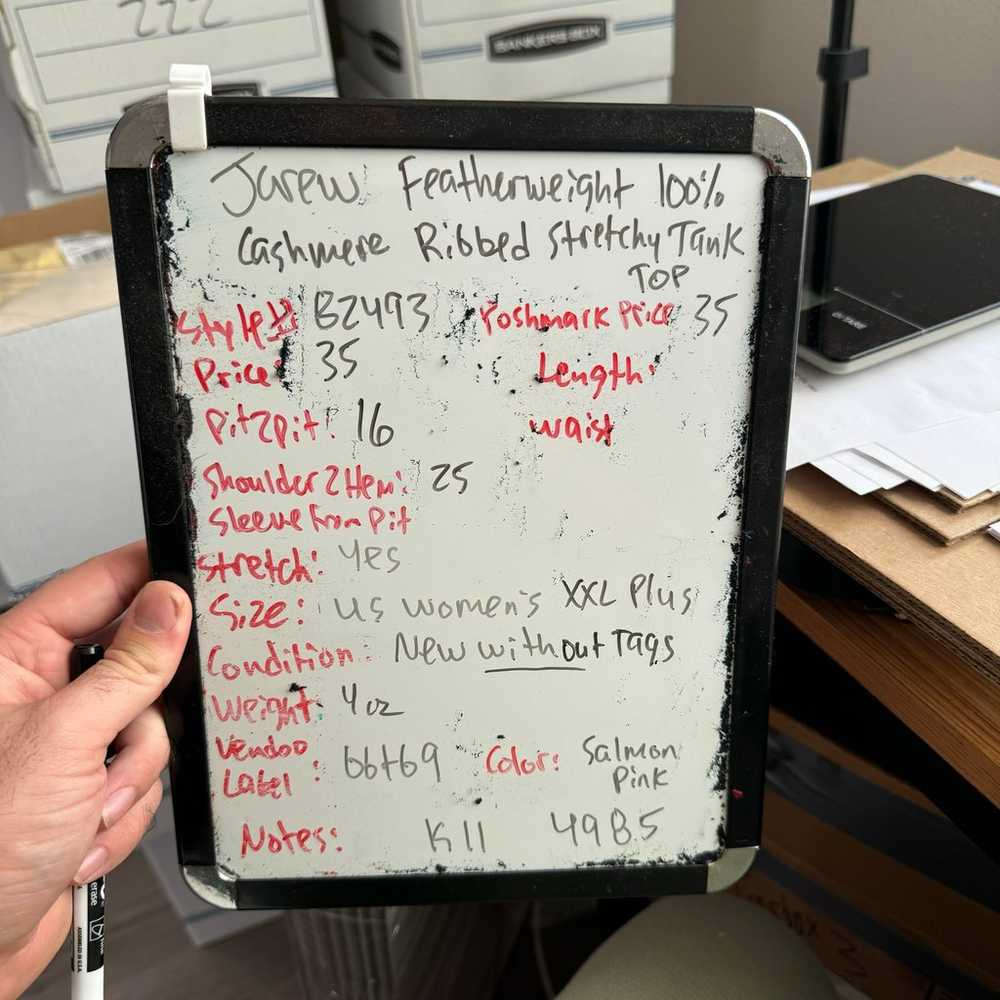 222
BANKERS BOX
Jcrew Featherweight 100%
Cashmere Ribbed Stretchy Tank
TOP
Style#: BZ493 Poshmark Price 35
Price: 35 Length:
Pit2pit: 16 waist
Shoulder2Hem: 25
Sleeve from Pit
Stretch: Yes
Size: US women's XXL Plus
Condition: New without Tags
Weight: 4 oz
Vendoo
Label: 66t69 Color: Salmon
Pink
Notes: K11 4985